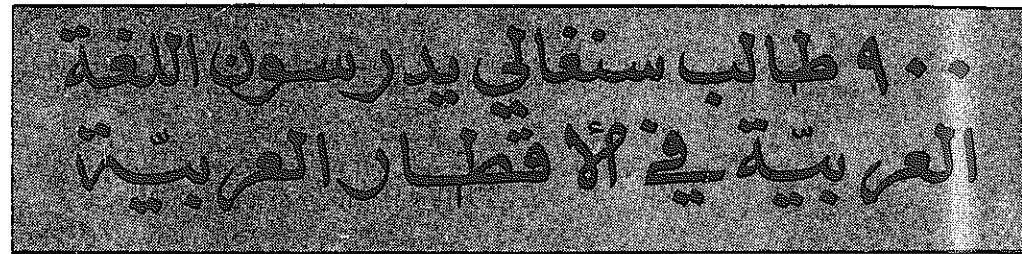 ٩٠٠ طالب سنغالي يدرسون اللغة
العربيّة في الأقطار العربيّة